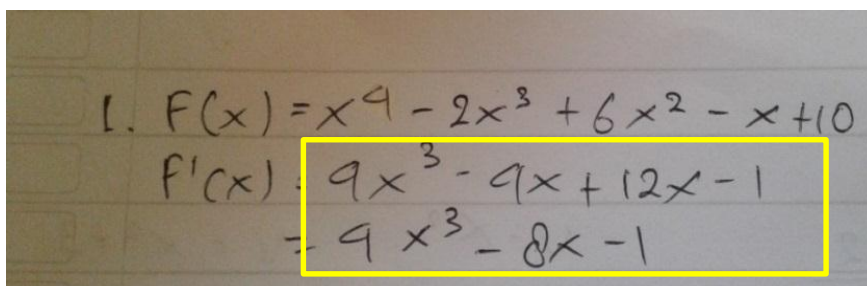 1. F(x) = x⁴ - 2x³ + 6x² - x + 10
F'(x) = 4x³ - 4x + 12x - 1
= 4x³ - 8x - 1